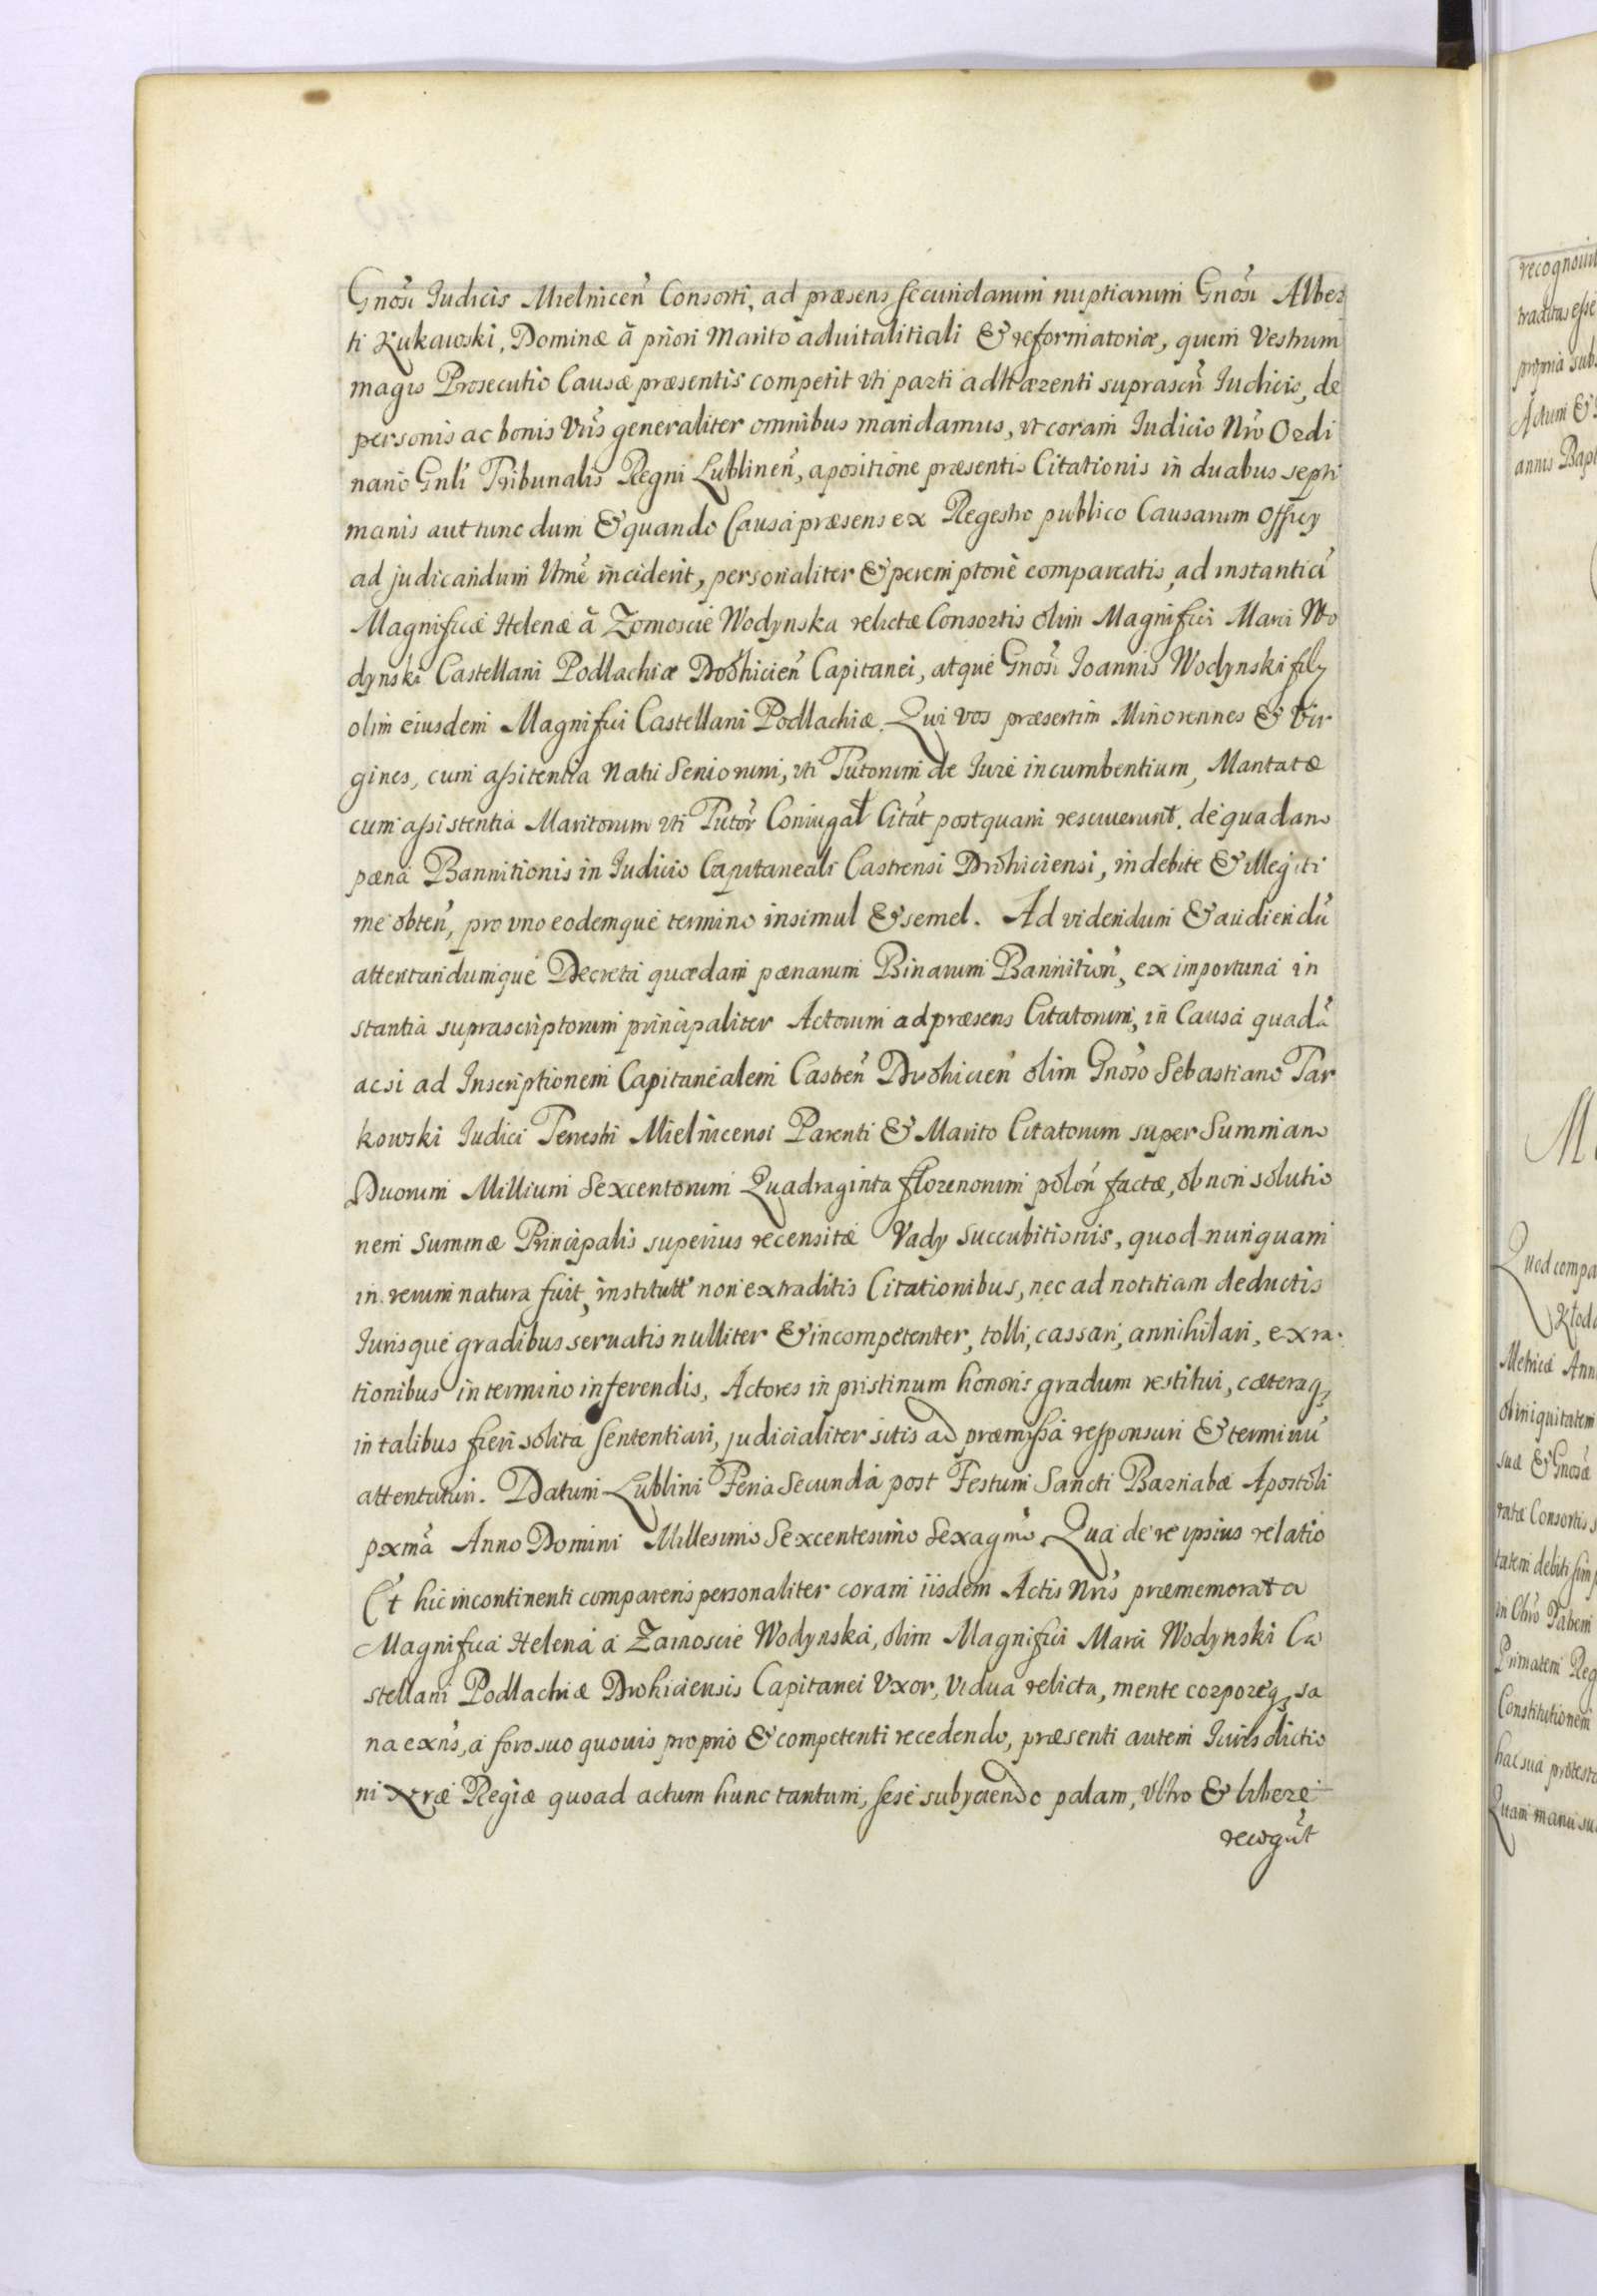 Gnosi Iudicis Mielnicen̄ Consorti, ad præsens secundarum nuptiarum Gnosi Alber
ti Kukawski, Dominæ à priori Marito aduitalitiali & reformatoriæ, quem Vestrum
magis Prosecutio Causæ præsentis competit vti parti adhærenti suprascri Iudicis, de
personis ac bonis Vris generaliter omnibus mandamus, vt coram Iudicio Nro Ordi
nario Gnli Tribunalis Regni Lublinen̄, a positione præsentis Citationis in duabus septi
manis aut tunc dum & quando Causa præsens ex Regestro publico Causarum Officy
ad judicandum Vtme inciderit, personaliter & peremptorie compareatis, ad instantiā
Magnificæ Helenæ à Zomoscie Wodynska relictæ Consortis olim Magnifici Marci Wo
dynski Castellani Podlachiæ Drohicien̄ Capitanei, atque Gnosi Ioannis Wodynski fily
olim eiusdem Magnifici Castellani Podlachiæ. Qui vos præsertim Minorennes & Vir
gines, cum assitentia Natu Seniorum, vti Tutorum de Iure incumbentium, Maritatæ
cum assistentia Maritorum vti Tutor Coniugal Citat postquam resciuerunt, de quadam
pæna Bannitionis in Iudicio Capitaneali Castrensi Drohiciensi, indebite & illegiti
me obten̄, pro vno eodemque termino insimul & semel. Ad videndum & audiendū
attentandumque Decreta quædam pænarum Binarum Bannition̄, ex importuna in
stantia suprascriptorum principaliter Actorum ad præsens Citatorum, in Causa quadā
acsi ad Inscriptionem Capitanealem Castren̄ Drohicien̄ olim Gnoso Sebastiano Tar
kowski Iudici Terrestri Mielnicensi Parenti & Marito Citatorum super Summam
Duorum Millium Sexcentorum Quadraginta florenorum polon̄ factæ, ob non solutio
nem Summæ Principalis superius recensitæ Vady Succubitionis, quod nunquam
in rerum natura fuit, institutt non extraditis Citationibus, nec ad notitiam deductis
Iurisque gradibus seruatis nulliter & incompetenter, tolli, cassari, annihilari, ex ra
tionibus in termino inferendis, Actores in pristinum honoris gradum restitui, cæteraq,
in talibus fieri solita sententiari, judicialiter sitis ad præmissa responsuri & terminū
attentaturi. Datum Lublini Feria Secunda post Festum Sancti Barnabæ Apostoli
pxmā Anno Domini Millesimo Sexcentesimo Sexagmo. Qua de re ipsius relatio
Et hic incontinenti comparens personaliter coram iisdem Actis Nris præmemorata
Magnifica Helena à Zamoscie Wodynska, olim Magnifici Marci Wodynski Ca
stellani Podlachiæ Drohiciensis Capitanei Vxor, Vidua relicta, mente corporeq, sa
na exns, a foro suo quouis proprio & competenti recedendo, præsenti autem Iurisdictio
ni xtræ Regiæ quoad actum hunc tantum, sese subyciendo palam, Vltro & libere
recogūt
recognouit
tracta
propria sub
Actum &
annis Bapt
M
Quod compa
Kłoda
Metricæ Ann
ob iniquitatem
suæ & Gnosæ
ratæ Consortis s
tatem debiti
Primatem Reg
Constitutionem
hac sua protesta
Quam manu su